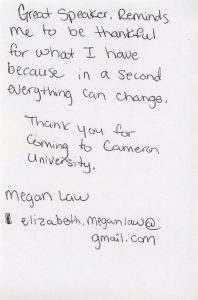 Great Speaker. Reminds
me to be thankful
for what I have
because in a second
everything can change.
Thank you for
coming to Cameron
University.
Megan Law
elizabeth.meganlaw@
gmail.com